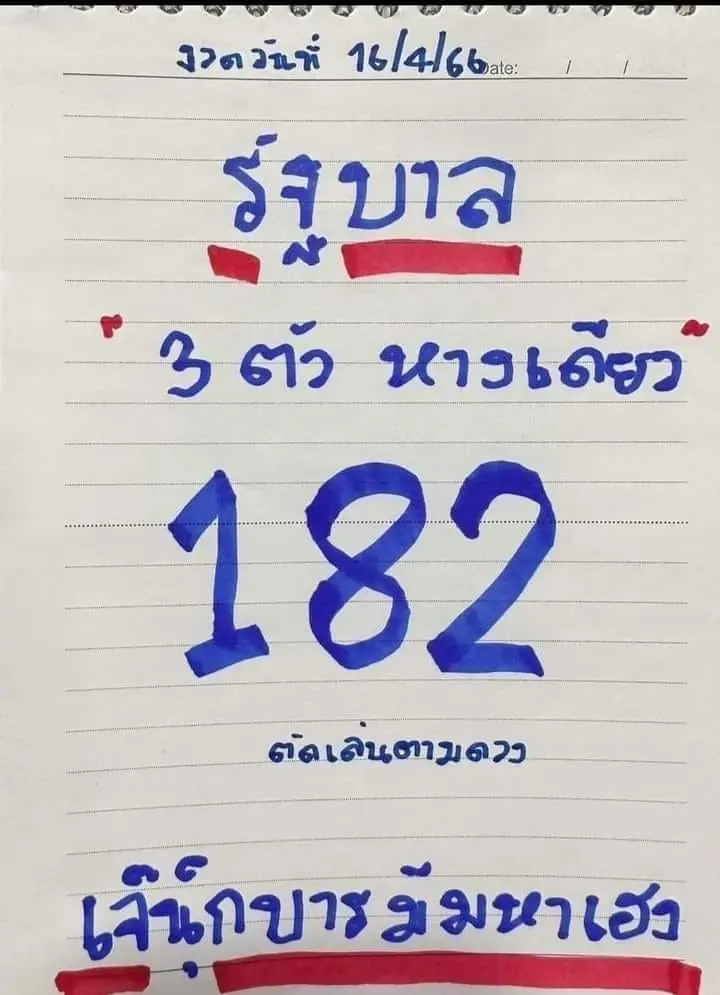 งวดวันที่ 16/4/66 Date: / /
รัฐบาล
" 3 ตัว หางเดียว "
182
ตัดเล่นตามดวง
เจ๊นุ๊กบารมีมหาเฮง